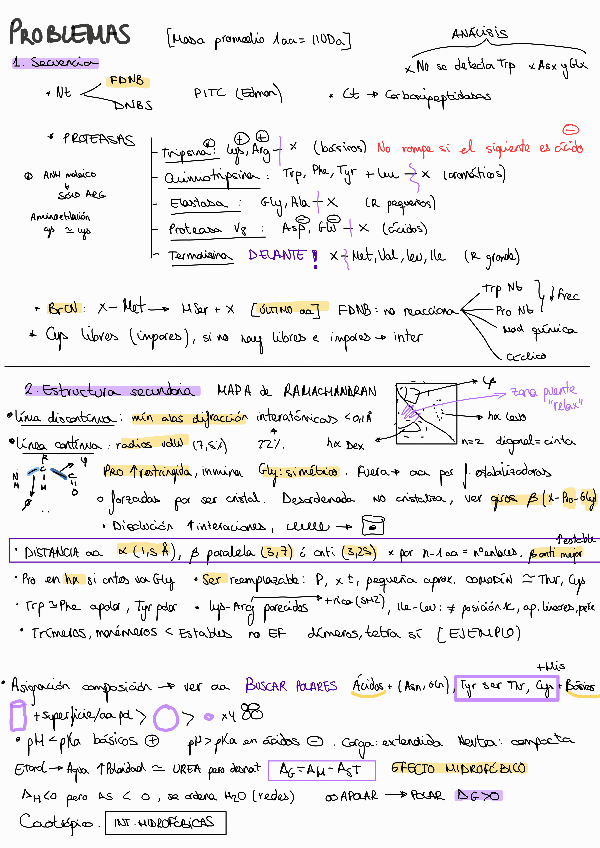 PROBLEMAS [Masa promedio 1aa = 110Da] ANÁLISIS
1. Secuencia x No se detecta Trp x Asx y Glx
• Nt FDNB PITC (Edman) • Ct → Carboxipeptidasas
DNBS
* PROTEASAS
Tripsina: Lys, Arg - x (básicos) No rompe si el siguiente es ácido
Quimotripsina: Trp, Phe, Tyr + Leu - x (aromáticos)
Elastasa: Gly, Ala - x (R pequeños)
Proteasa V8: Asp, Glu - x (ácidos)
Termolisina DELANTE! x - Met, Val, Leu, Ile (R grande)
Anh maleico
SOLO ARG
Aminoetilación
cys ≃ lys
• BrCN: X - Met → HSer + X [ÚLTIMO aa] FDNB: no reacciona
Trp Nt
Pro Nt
↓ frec
Mod química
Cíclico
* Cys libres (impares), si no hay libres e impares → inter
2. Estructura secundaria MAPA de RAMACHANDRAN
φ
zona puente
"relax"
hx levo
hx Dex n=2 diagonal = cinta
• línea discontinua: mín alas difracción interatómicas < 0,1Å
• línea contínua: radios vdW 22%
Pro ↑ restringida, inmina Gly: simétrico. Fuera → aa por f. estabilizadoras
o forzadas por ser cristal. Desordenada no cristaliza, ver giros β (x-Pro-Gly)
• Disolución ↑ interacciones,
• DISTANCIA aa α (1,5 Å), β paralela (3,7) ó anti (3,25) x por n-1 aa = nº enlaces. β anti mejor
↑ estable
• Pro en hx si antes va Gly • Ser reemplazable: P, x t, pequeña aprox. COMODÍN ≃ Thr, Cys
• Trp ≃ Phe apolar, Tyr polar • Lys-Arg parecidos, Ile-Leu: ≠ posición
• Trímeros, monómeros < Estables no EF dímeros, tetra sí [EJEMPLO]
+ His
• Asignación composición → ver aa BUSCAR POLARES Ácidos + (Asn, Gln), Tyr ser Thr, Cys + Básicos
+ superficie/aa pol > > x4
• pH < pKa básicos + pH > pKa en ácidos - . Carga: extendida Neutra: compacta
Etanol → Agua ↑ Polaridad ≃ UREA pero desnat ΔG = ΔH - ΔST EFECTO HIDROFÓBICO
ΔH<0 pero ΔS < 0, se ordena H2O (redes) APOLAR → POLAR ΔG>0
Caotrópico. INT. HIDROFÓBICAS